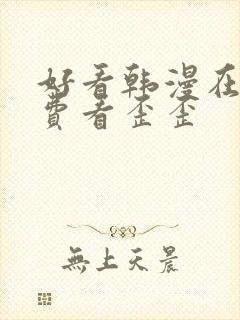 好看韩漫在
费看歪歪
無上天晨